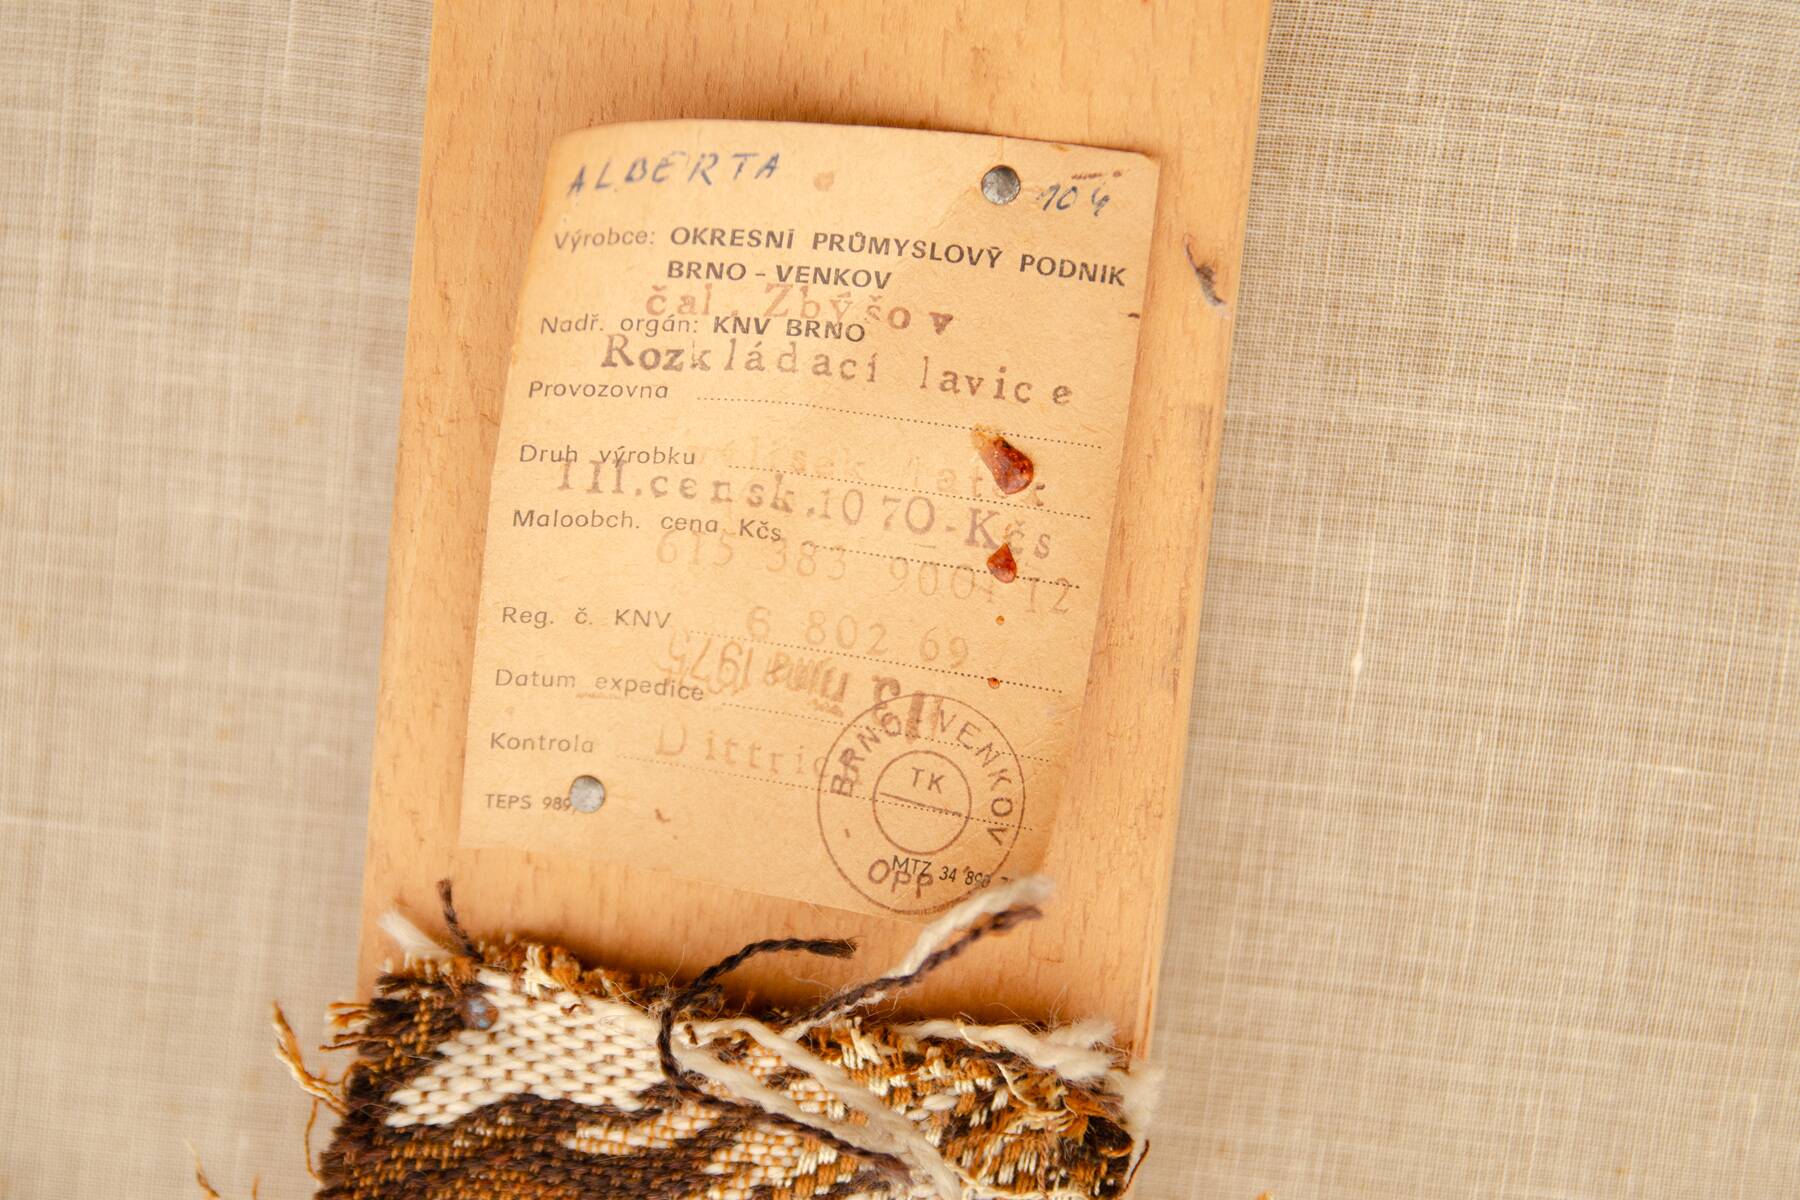 ALBERTA 104
Výrobce: OKRESNÍ PRŮMYSLOVÝ PODNIK
BRNO - VENKOV
čal. Zbýšov
Nadř. orgán: KNV BRNO
Rozkládací lavice
Provozovna
Druh výrobku
III.censk.1070-Kčs
Maloobch. cena Kčs
615 383 9001 12
Reg. č. KNV 6 802 69
října 1975
Datum expedice
Kontrola
TEPS 989
BRNO VENKOV
TK
OPP
MTZ 34